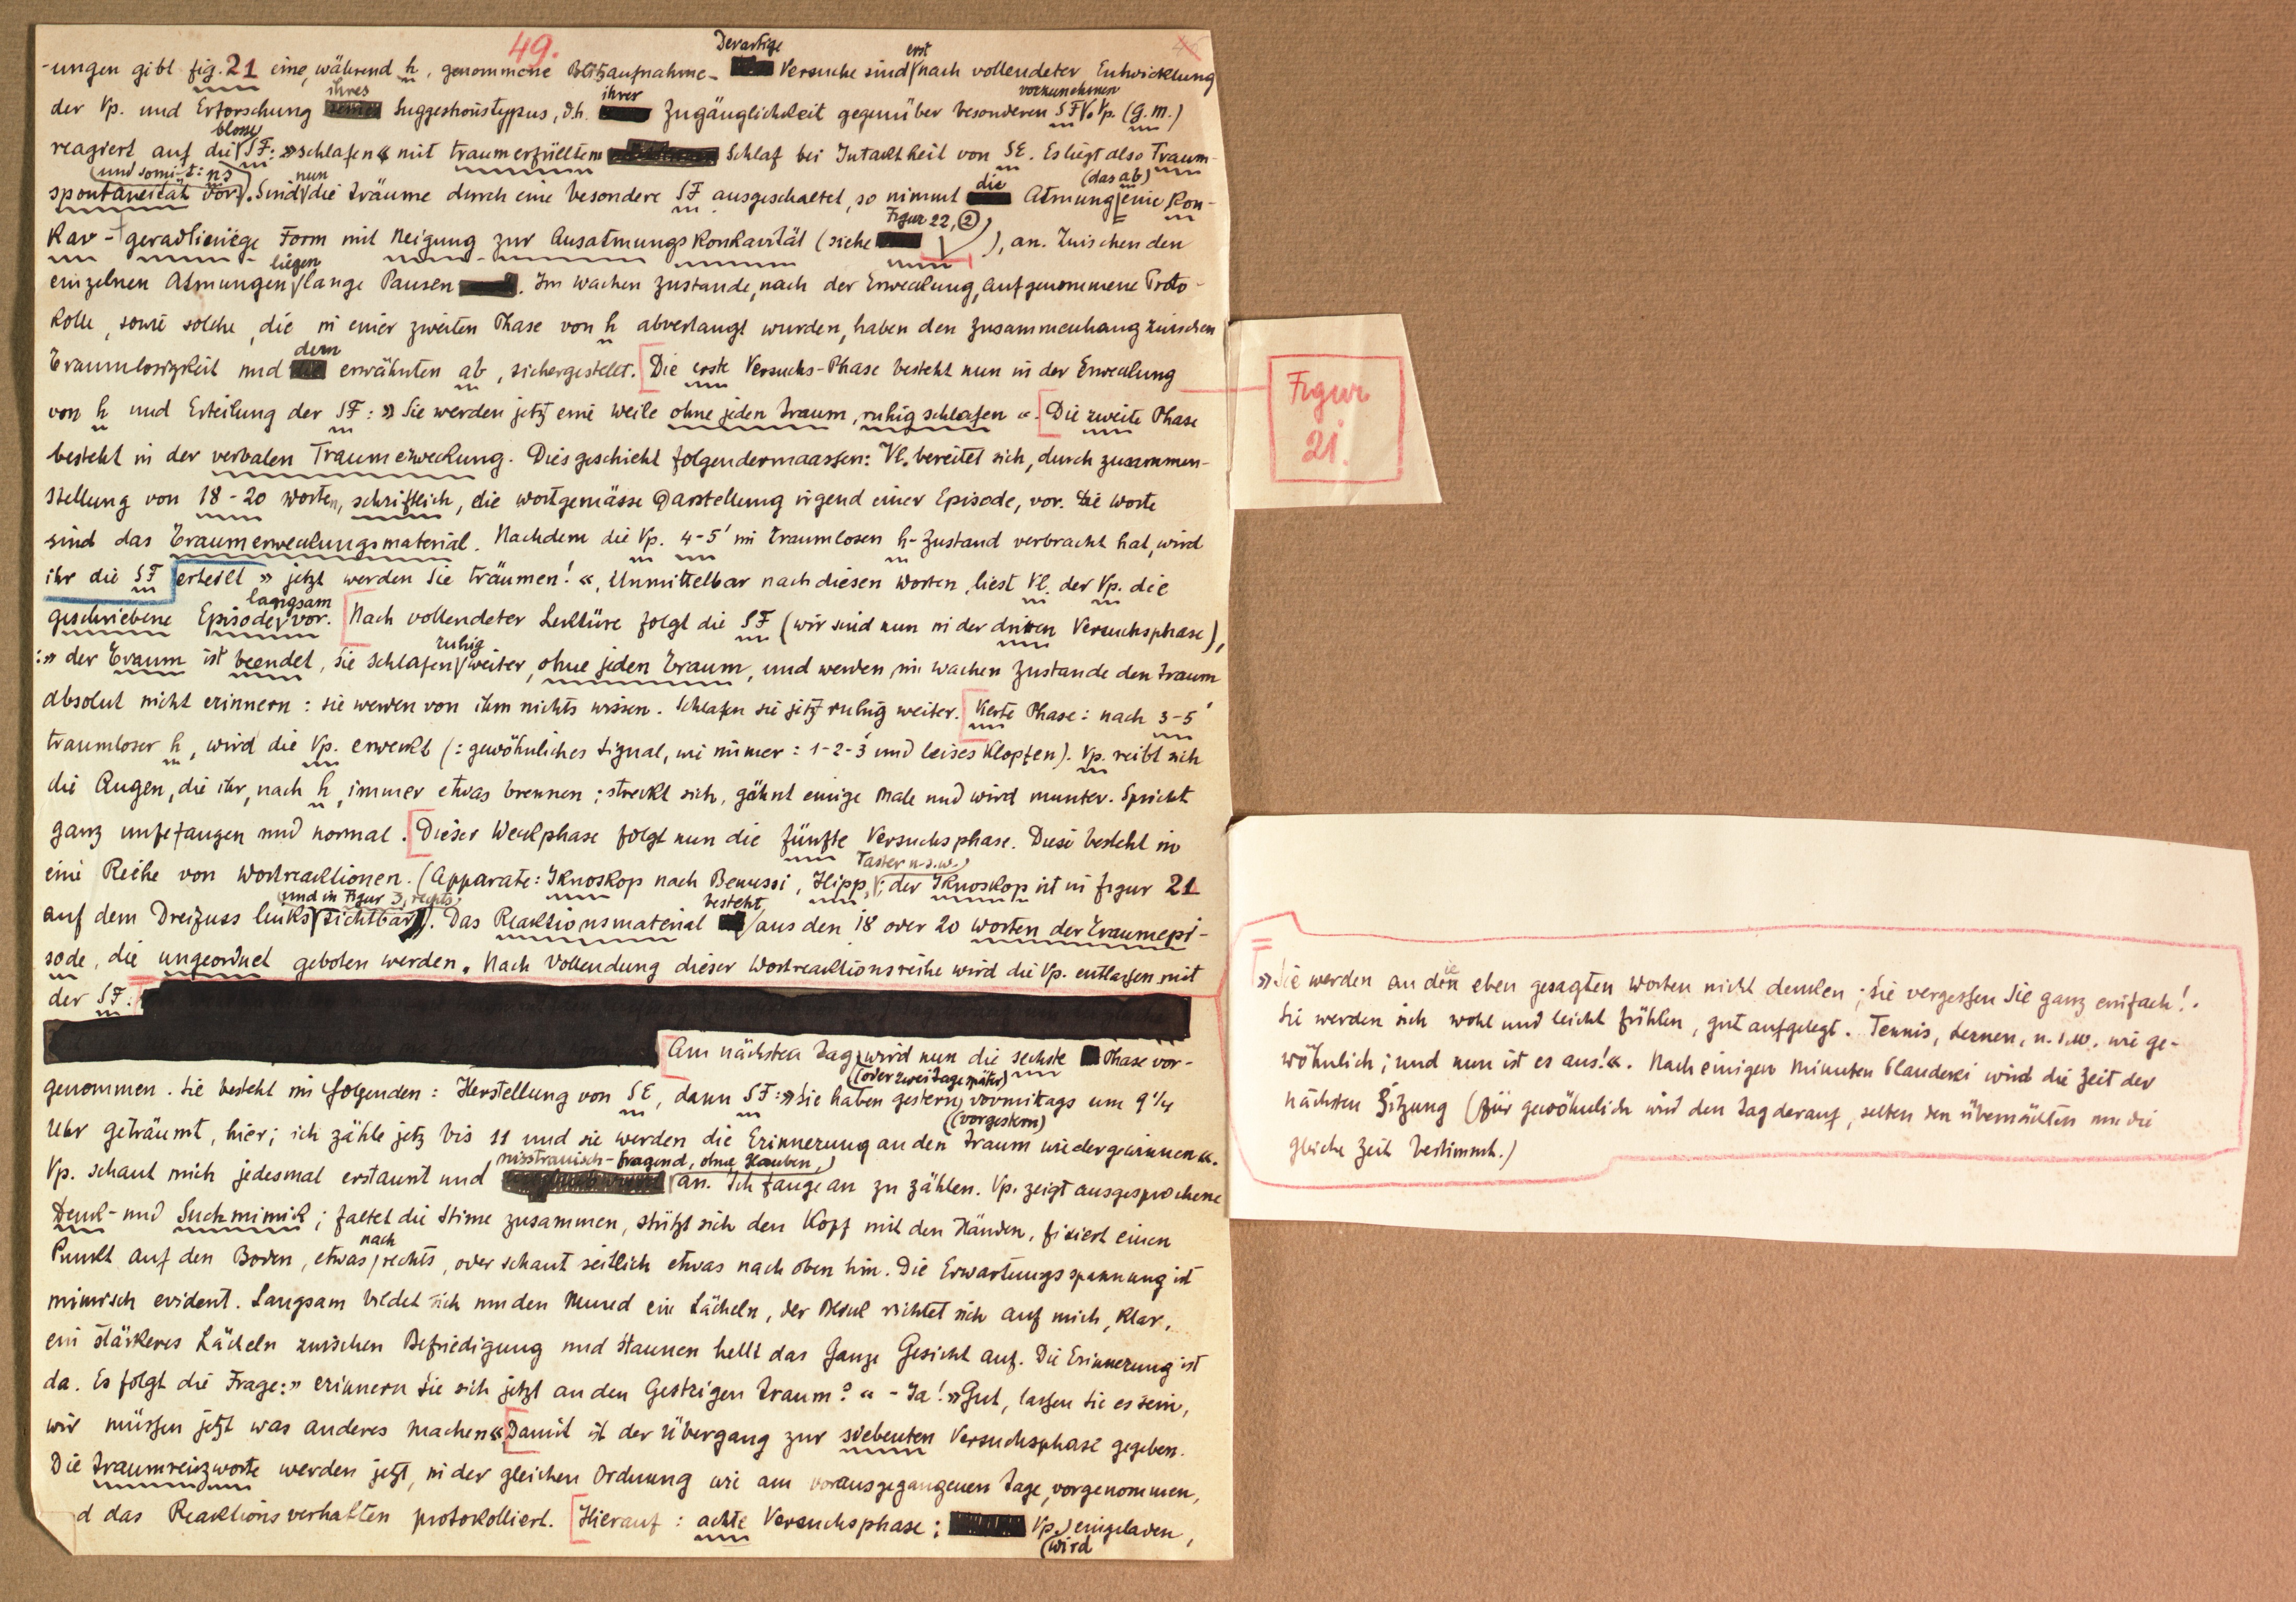 49.
-ungen gibt fig. 21 eine, während h, genommene Blitzaufnahme- Derartige Versuche sind erst nach vollendeter Entwicklung
der Vp. und Erforschung ihres Suggestionstypus, d.h. ihrer Zugänglichkeit gegenüber besonderen SF vorzunehmen. Vp. (g. m.)
reagiert auf die blosse SF: »schlafen« mit traumerfülltem Schlaf bei Intaktheit von SE. Es liegt also Traum-
spontaneität vor (und somit: ps). Sind nun die Träume durch eine besondere SF ausgeschaltet, so nimmt die Atmung (das ab) eine kon-
kav-geradlinige Form mit Neigung zur Ausatmungskonkavität (siehe Figur 22, ②), an. Zwischen den
einzelnen Atmungen liegen lange Pausen. Im wachen Zustande, nach der Erweckung, aufgenommene Proto-
kolle, sowie solche, die in einer zweiten Phase von h abverlangt wurden, haben den Zusammenhang zwischen
Traumlosigkeit und dem erwähnten ab, sichergestellt. Die erste Versuchs-Phase besteht nun in der Erweckung
von h und Erteilung der SF: »Sie werden jetz eine Weile ohne jeden Traum, ruhig schlafen«. Die zweite Phase
besteht in der verbalen Traumerweckung. Dies geschieht folgendermaassen: Vl. bereitet sich, durch Zusammen-
stellung von 18-20 Worten, schriftlich, die wortgemässe Darstellung irgend einer Episode, vor. Die Worte
sind das Traumerweckungsmaterial. Nachdem die Vp. 4-5' im traumlosen h-Zustand verbracht hat, wird
ihr die SF erteilt »jetzt werden Sie träumen!«. Unmittelbar nach diesen Worten, liest Vl. der Vp. die
geschriebene Episode langsam vor. Nach vollendeter Lektüre folgt die SF (wir sind nun in der dritten Versuchsphase),
:»der Traum ist beendet, Sie schlafen ruhig weiter, ohne jeden Traum, und werden im wachen Zustande den Traum
absolut nicht erinnern: sie werden von ihm nichts wissen. Schlafen sie jetz ruhig weiter. Vierte Phase: nach 3-5'
traumloser h, wird die Vp. erweckt (: gewöhnliches Signal, wie immer: 1-2-3 und leises Klopfen). Vp. reibt sich
die Augen, die ihr, nach h, immer etwas brennen; streckt sich, gähnt einige Male und wird munter. Spricht
ganz unbefangen und normal. Dieser Weckphase folgt nun die fünfte Versuchsphase. Diese besteht in
eine Reihe von Wortreaktionen. (Apparate: Iknoskop nach Benussi, Hipp, Taster u.s.w.; der Iknoskop ist in figur 21
auf dem Dreifuss links und in Figur 3, rechts sichtbar). Das Reaktionsmaterial besteht aus den 18 oder 20 Worten der Traumepi-
sode, die ungeordnet geboten werden. Nach Vollendung dieser Wortreaktionsreihe wird die Vp. entlassen mit
der SF:
Am nächsten Tag (oder zwei Tage später) wird nun die sechste Phase vor-
genommen. Sie besteht im folgenden: Herstellung von SE, dann SF: »Sie haben gestern (vorgestern) vormittags um 9 1/4
Uhr geträumt, hier; ich zähle jetz bis 11 und sie werden die Erinnerung an den Traum wiedergewinnen«.
Vp. schaut mich jedesmal erstaunt und misstrauisch-fragend, ohne Glauben, an. Ich fange an zu zählen. Vp. zeigt ausgesprochene
Denk- und Suchmimik; faltet die Stirne zusammen, stützt sich den Kopf mit den Händen, fixiert einen
Punkt auf den Boden, etwas nach rechts, oder schaut seitlich etwas nach oben hin. Die Erwartungsspannung ist
mimisch evident. Langsam bildet sich um den Mund ein Lächeln, der Blick richtet sich auf mich, klar,
ein stärkeres Lächeln zwischen Befriedigung und Staunen hellt das ganze Gesicht auf. Die Erinnerung ist
da. Es folgt die Frage: »erinnern Sie sich jetzt an den Gestrigen Traum?« - Ja! »Gut, lassen Sie es sein,
wir müssen jetzt was anderes machen« Damit ist der Übergang zur siebenten Versuchsphase gegeben.
Die Traumreizworte werden jetzt, in der gleichen Ordnung wie am vorausgegangenen Tage, vorgenommen,
d das Reaktionsverhalten protokolliert. Hierauf: achte Versuchsphase: Vp. (wird) eingeladen,
Figur
21.
»Sie werden an die eben gesagten Worten nicht denken; Sie vergessen Sie ganz einfach!.
Sie werden sich wohl und leicht fühlen, gut aufgelegt. Tennis, Lernen, u.s.w. wie ge-
wöhnlich; und nun ist es aus!«. Nach einigen Minuten Plauderei wird die Zeit der
nächsten Sitzung (für gewöhnlich wird den Tag darauf, selten den übernächsten um die
gleiche Zeit bestimmt.)